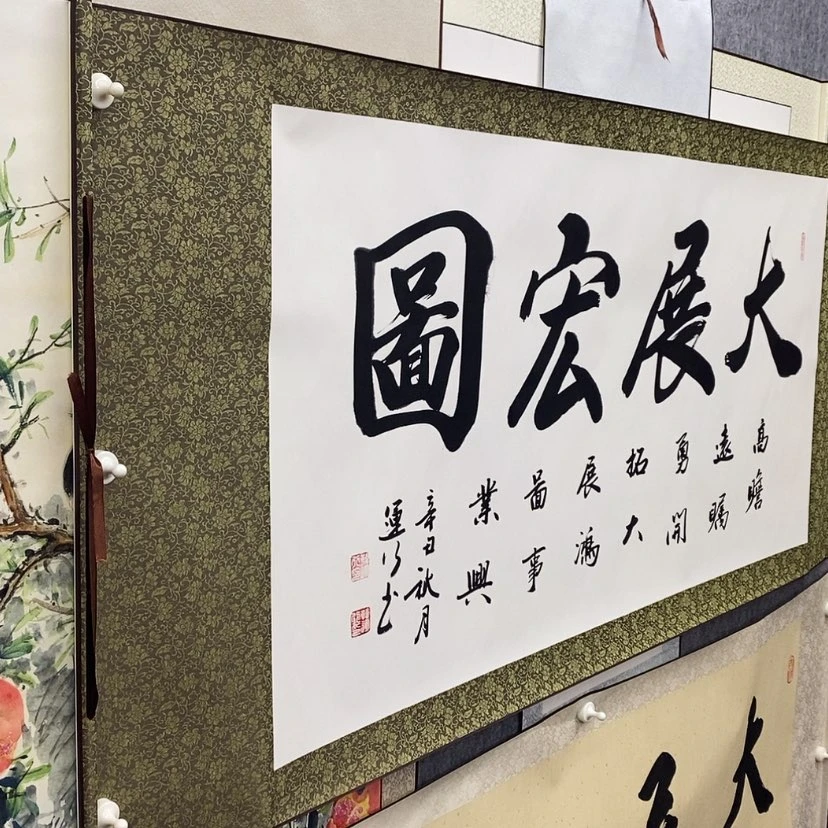 大展宏圖
高瞻
遠矚
勇開
拓大
展鴻
圖事
業興
辛丑秋月
書
大